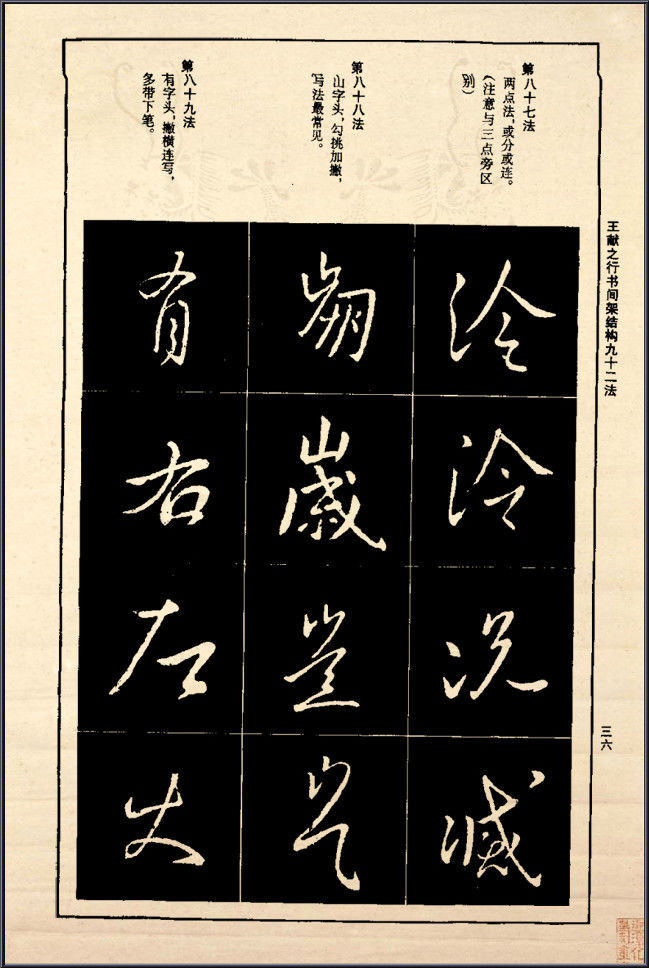 王献之行书间架结构九十二法
三六
第八十七法
两点法，或分或连。
（注意与三点旁区
别）
第八十八法
山字头，勾挑加撇，
写法最常见。
第八十九法
有字头，撇横连写，
多带下笔。
冷
冷
况
减
岁
岂
有
右
左